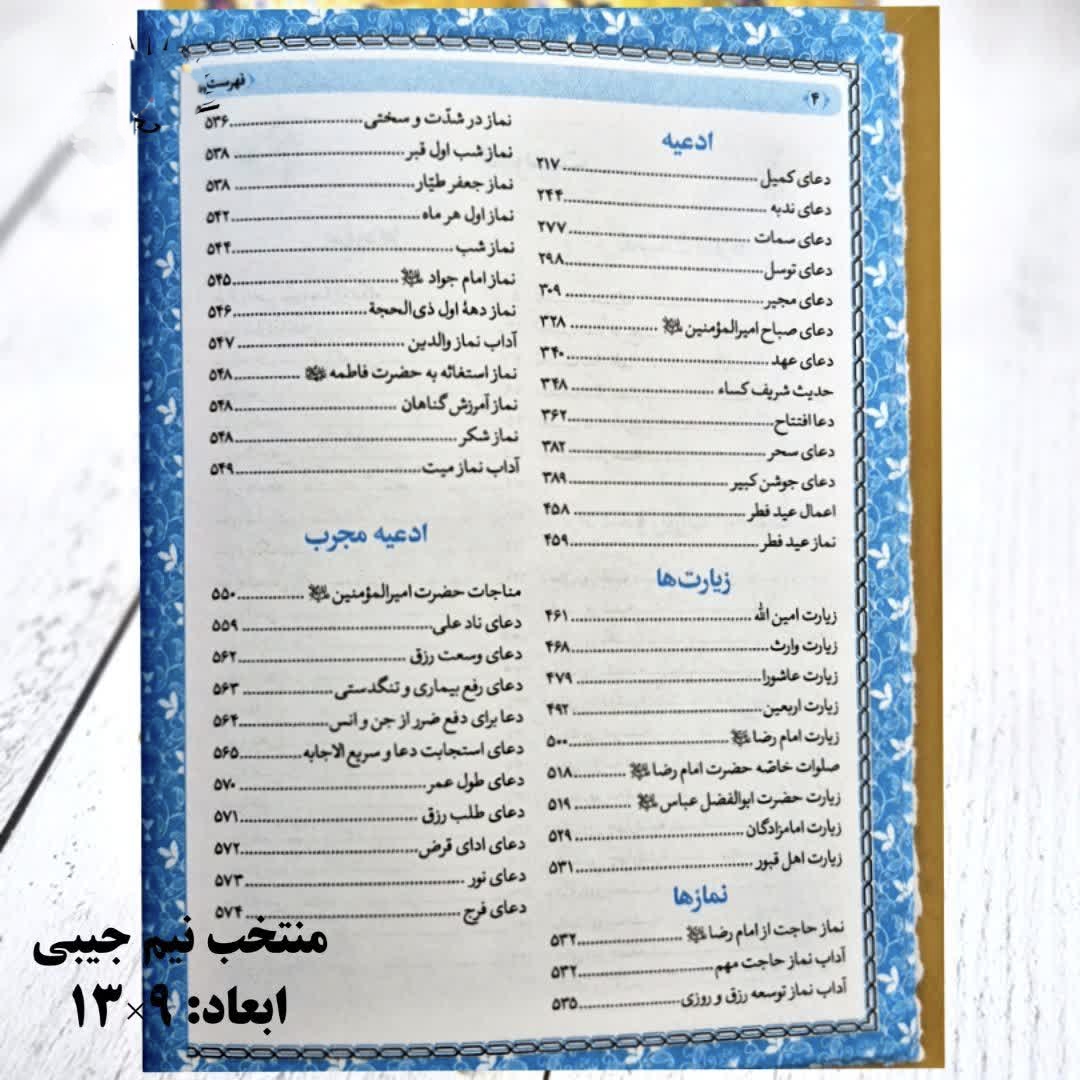 ﴿۴﴾
فهرست
ادعیه
دعای کمیل ........ ۲۱۷
دعای ندبه ........ ۲۴۴
دعای سمات ........ ۲۷۷
دعای توسل ........ ۲۹۸
دعای مجیر ........ ۳۰۹
دعای صباح امیرالمؤمنین ........ ۳۲۸
دعای عهد ........ ۳۴۰
حدیث شریف کساء ........ ۳۴۸
دعا افتتاح ........ ۳۶۲
دعای سحر ........ ۳۸۲
دعای جوشن کبیر ........ ۳۸۹
اعمال عید فطر ........ ۴۵۸
نماز عید فطر ........ ۴۵۹
زیارت‌ها
زیارت امین الله ........ ۴۶۱
زیارت وارث ........ ۴۶۸
زیارت عاشورا ........ ۴۷۹
زیارت اربعین ........ ۴۹۲
زیارت امام رضا ........ ۵۰۰
صلوات خاصّه حضرت امام رضا ........ ۵۱۸
زیارت حضرت ابوالفضل عباس ........ ۵۱۹
زیارت امامزادگان ........ ۵۲۹
زیارت اهل قبور ........ ۵۳۱
نمازها
نماز حاجت از امام رضا ........ ۵۳۲
آداب نماز حاجت مهم ........ ۵۳۲
آداب نماز توسعه رزق و روزی ........ ۵۳۵
نماز در شدّت و سختی ........ ۵۳۶
نماز شب اول قبر ........ ۵۳۸
نماز جعفر طیّار ........ ۵۳۸
نماز اول هر ماه ........ ۵۴۲
نماز شب ........ ۵۴۴
نماز امام جواد ........ ۵۴۵
نماز دههٔ اول ذی‌الحجة ........ ۵۴۶
آداب نماز والدین ........ ۵۴۷
نماز استغاثه به حضرت فاطمه ........ ۵۴۸
نماز آمرزش گناهان ........ ۵۴۸
نماز شکر ........ ۵۴۸
آداب نماز میت ........ ۵۴۹
ادعیه مجرب
مناجات حضرت امیرالمؤمنین ........ ۵۵۰
دعای ناد علی ........ ۵۵۹
دعای وسعت رزق ........ ۵۶۲
دعای رفع بیماری و تنگدستی ........ ۵۶۳
دعا برای دفع ضرر از جن و انس ........ ۵۶۴
دعای استجابت دعا و سریع الاجابه ........ ۵۶۵
دعای طول عمر ........ ۵۷۰
دعای طلب رزق ........ ۵۷۱
دعای ادای قرض ........ ۵۷۲
دعای نور ........ ۵۷۳
دعای فرج ........ ۵۷۴
منتخب نیم جیبی
ابعاد: ۹×۱۳